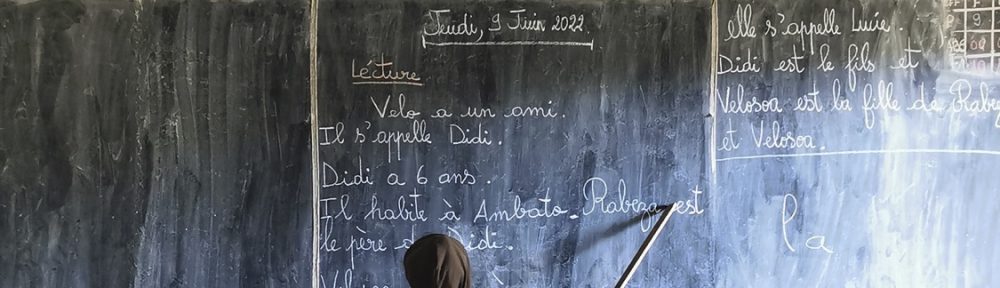 Jeudi, 9 Juin 2022.
Lécture
Velo a un ami.
Il s'appelle Didi.
Didi a 6 ans.
Il habite à Ambato. Rabeza est
le père de Didi.
elle s'appelle Luvie.
Didi est le fils et
Velosoa est la fille de Rabe
et Velosoa.
la
P
9